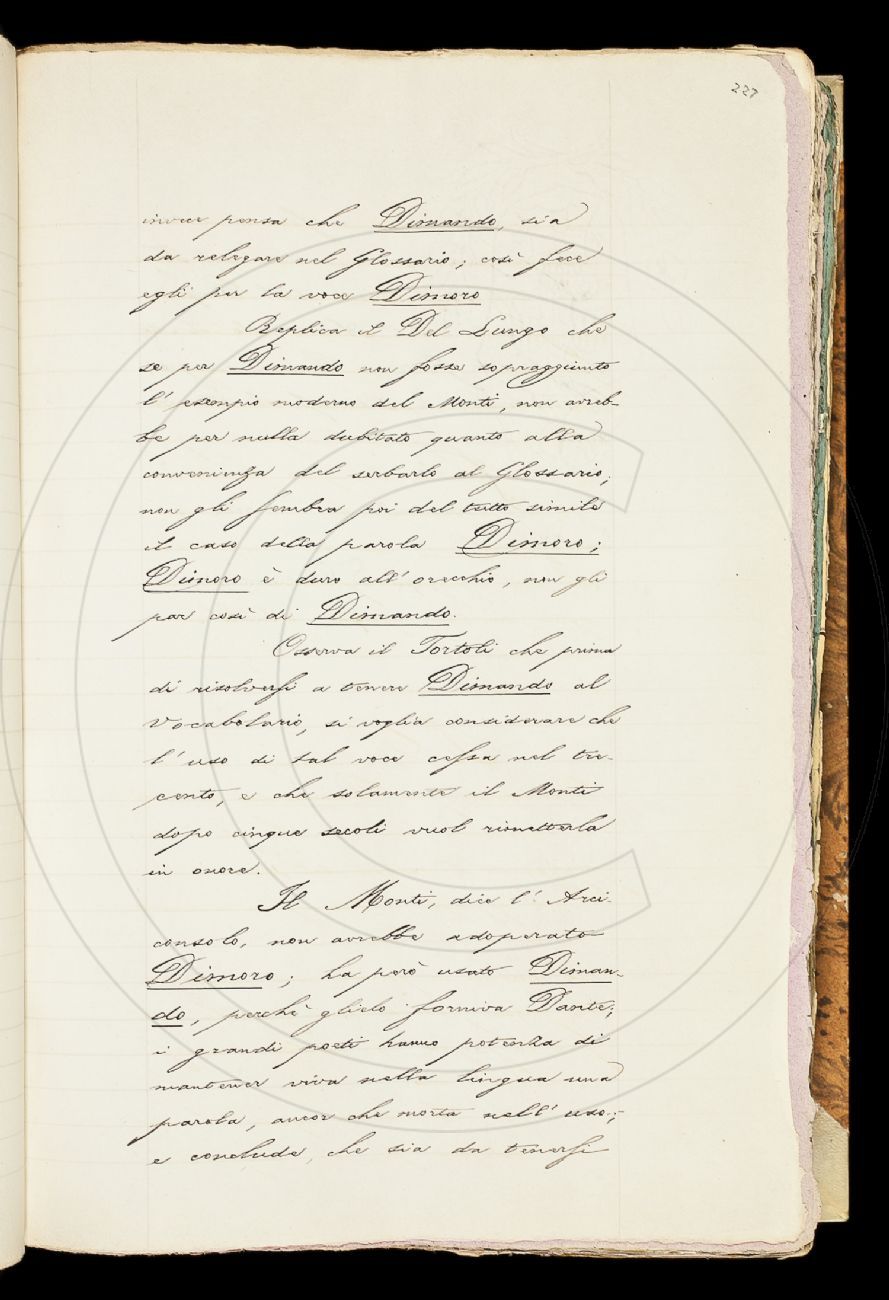 227
invece pensa che Dimando, sia
da relegare nel Glossario; così fece
egli per la voce Dimoro
Replica il Del Lungo che
se per Dimando non fosse sopraggiunto
l'esempio moderno del Monti, non avreb-
be per nulla dubitato quanto alla
convenienza del serbarlo al Glossario;
non gli sembra poi del tutto simile
il caso della parola Dimoro;
Dimoro è duro all'orecchio, non gli
par così di Dimando.
Osserva il Tortoli che prima
di risolversi a tenere Dimando al
Vocabolario, si voglia considerare che
l'uso di tal voce cessa nel tre-
cento, e che solamente il Monti
dopo cinque secoli vuol rimetterla
in onore.
Il Monti, dice l'Arci-
consolo, non avrebbe adoperato
Dimoro; ha però usato Diman-
do, perchè glielo forniva Dante;
i grandi poeti hanno potenza di
mantener viva nella lingua una
parola, ancor che morta nell'uso;
e conclude, che sia da tenersi